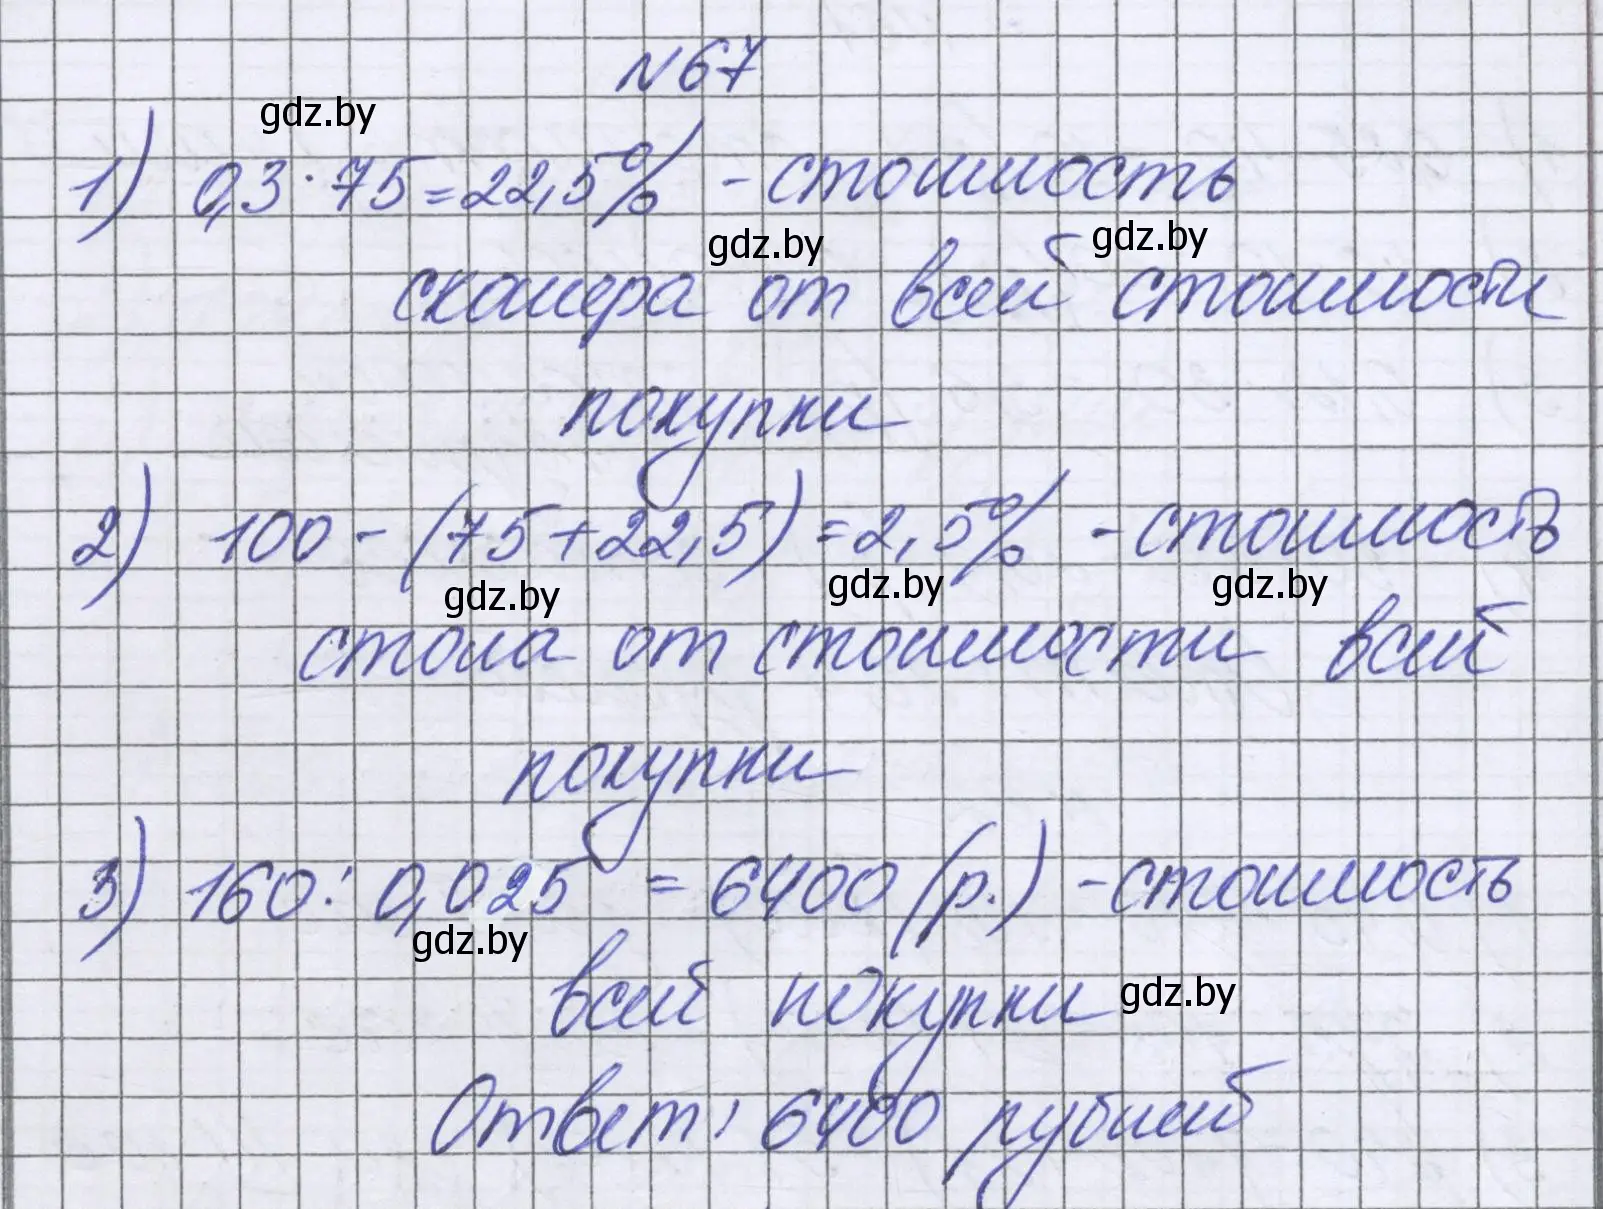 №67
gdz.by
1) 0,3·75=22,5% - стоимость
gdz.by gdz.by
сканера от всей стоимости
покупки
2) 100-(75+22,5)=2,5% - стоимость
gdz.by gdz.by gdz.by
стола от стоимости всей
покупки
3) 160:0,025 = 6400 (р.) - стоимость
gdz.by
всей покупки gdz.by
Ответ: 6400 рублей